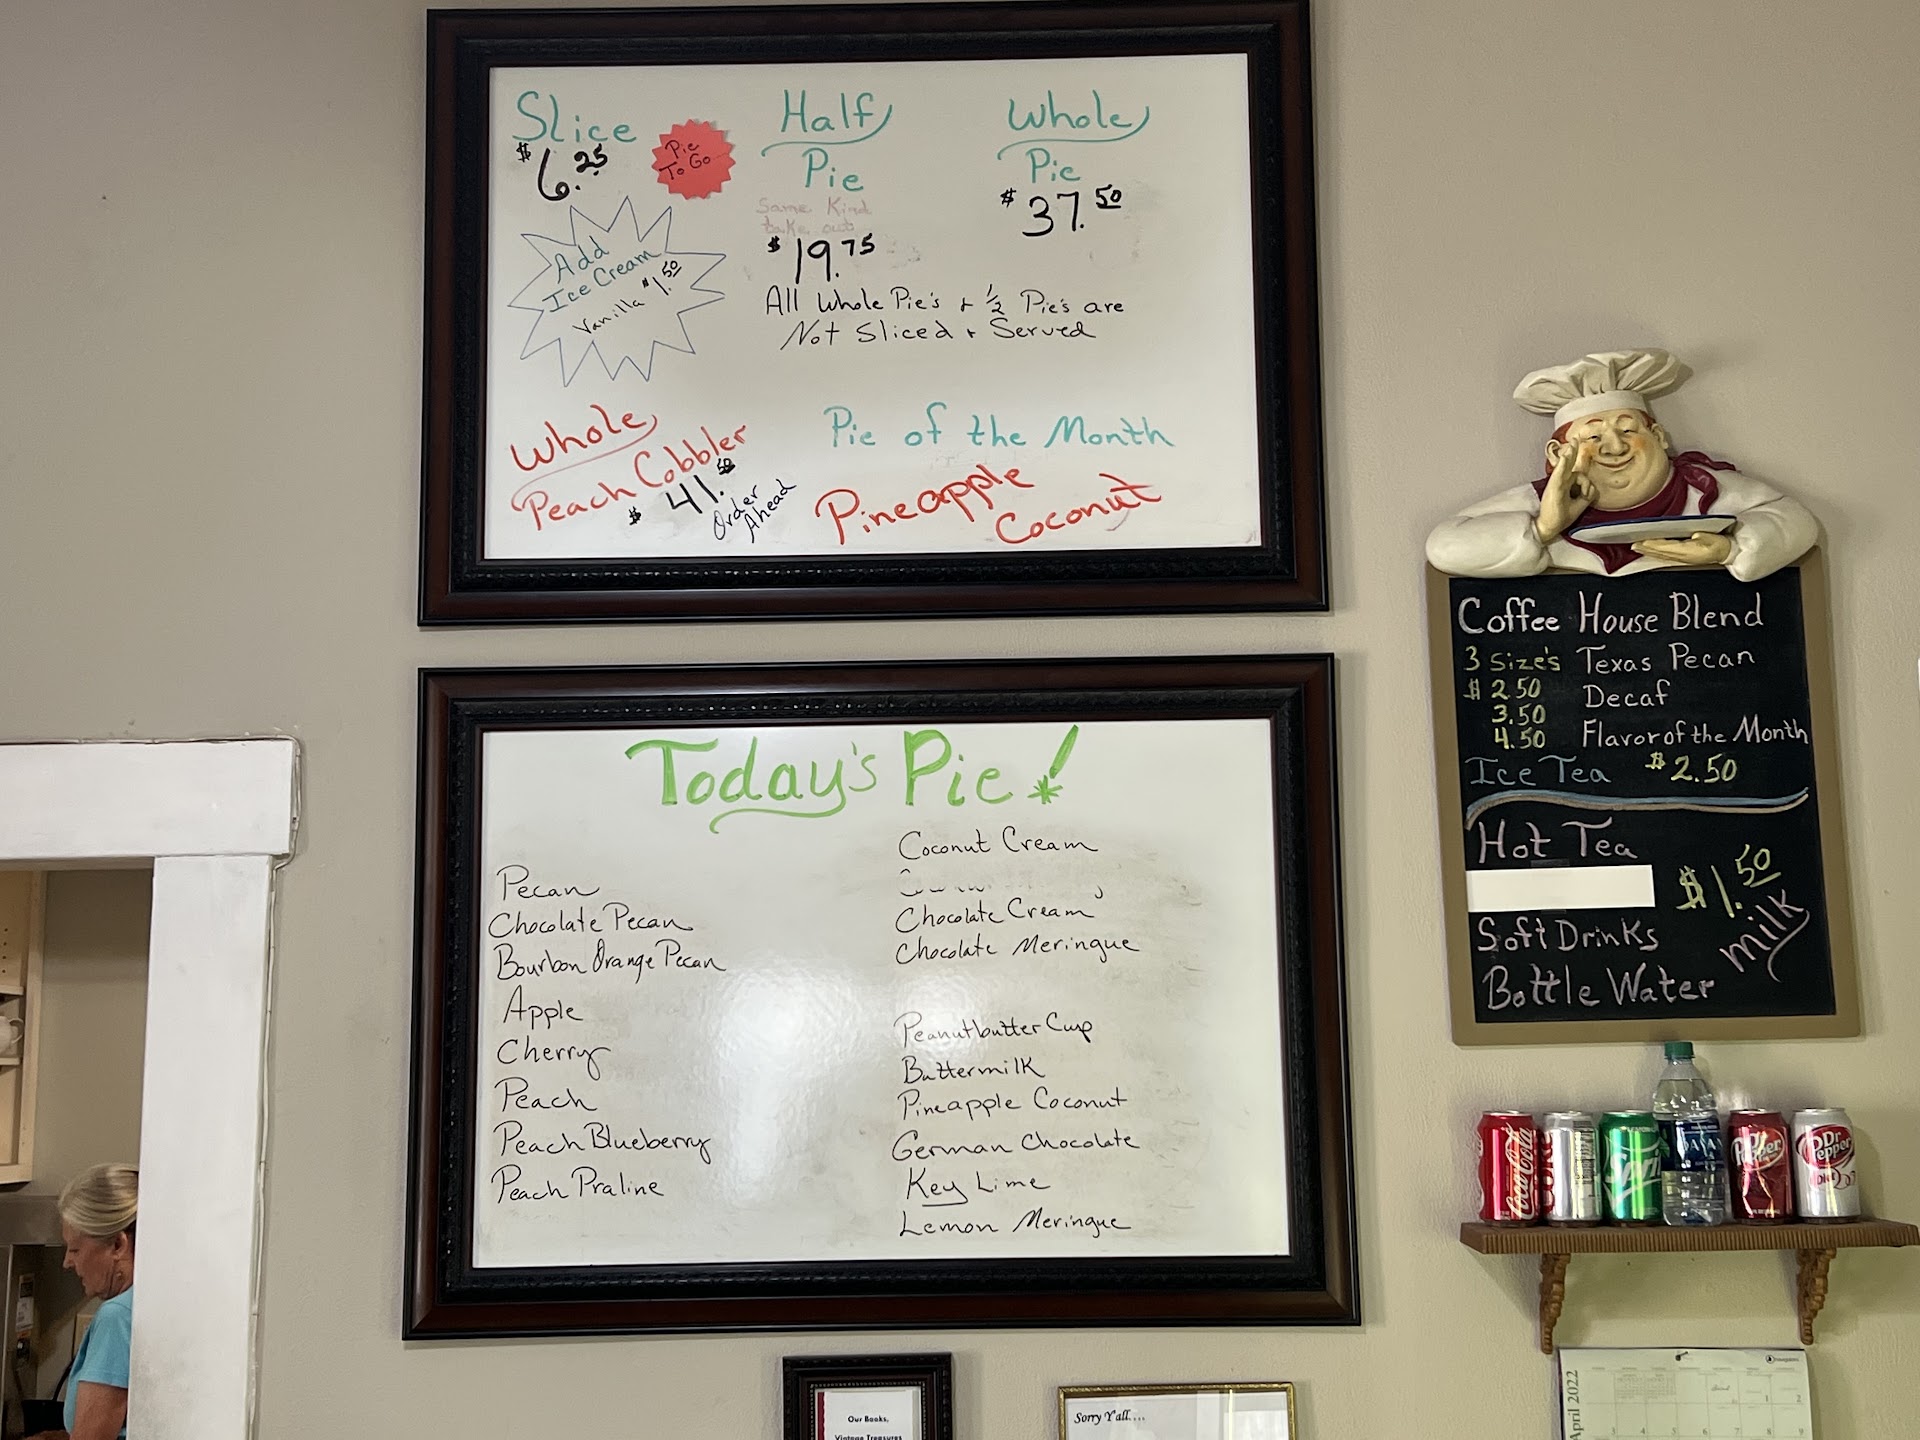 Slice
$6.25
Pie
To Go
Half
Pie
Same Kind
take out
$19.75
Whole
Pie
$37.50
Add
Ice Cream
Vanilla $1.50
All Whole Pie's + 1/2 Pie's are
Not Sliced + Served
Whole
Peach Cobbler
$41.50
Order
Ahead
Pie of the Month
Pineapple
Coconut
Today's Pie!
Pecan
Chocolate Pecan
Bourbon Orange Pecan
Apple
Cherry
Peach
Peach Blueberry
Peach Praline
Coconut Cream
Chocolate Cream
Chocolate Meringue
Peanutbutter Cup
Buttermilk
Pineapple Coconut
German Chocolate
Key Lime
Lemon Meringue
Coffee House Blend
3 Size's Texas Pecan
$2.50 Decaf
3.50
4.50 Flavor of the Month
Ice Tea $2.50
Hot Tea
$1.50
Soft Drinks
milk
Bottle Water
Coca-Cola
Coke
Sprite
DASANI
Dr Pepper
Dr Pepper
DIET
Our Books,
Vintage Treasures
Sorry Y'all....
April 2022
1
2
3
4
5
6
7
8
9